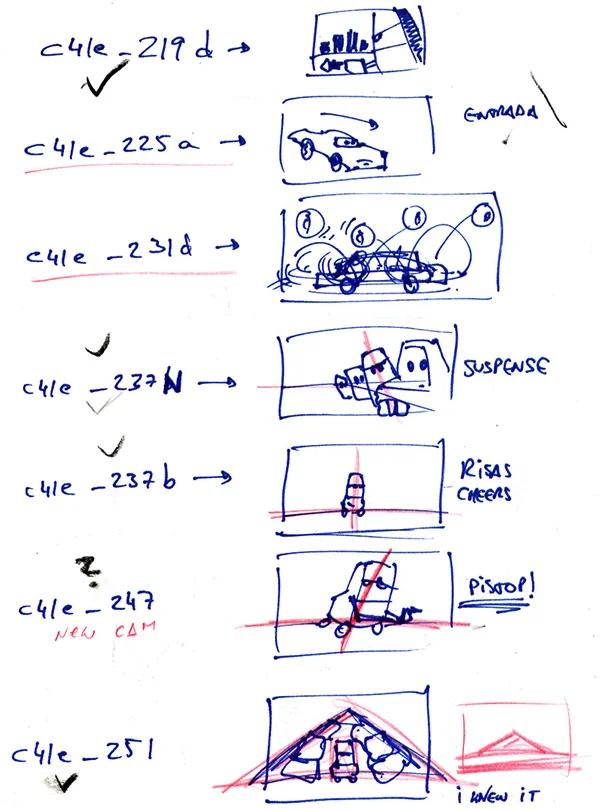 c41e_219d →
c41e_225a →
ENTRADA
c41e_231d →
c41e_237N →
SUSPENSE
c41e_237b →
RISAS
CHEERS
?
c41e_247
NEW CAM
PISTOP!
c41e_251
I KNEW IT